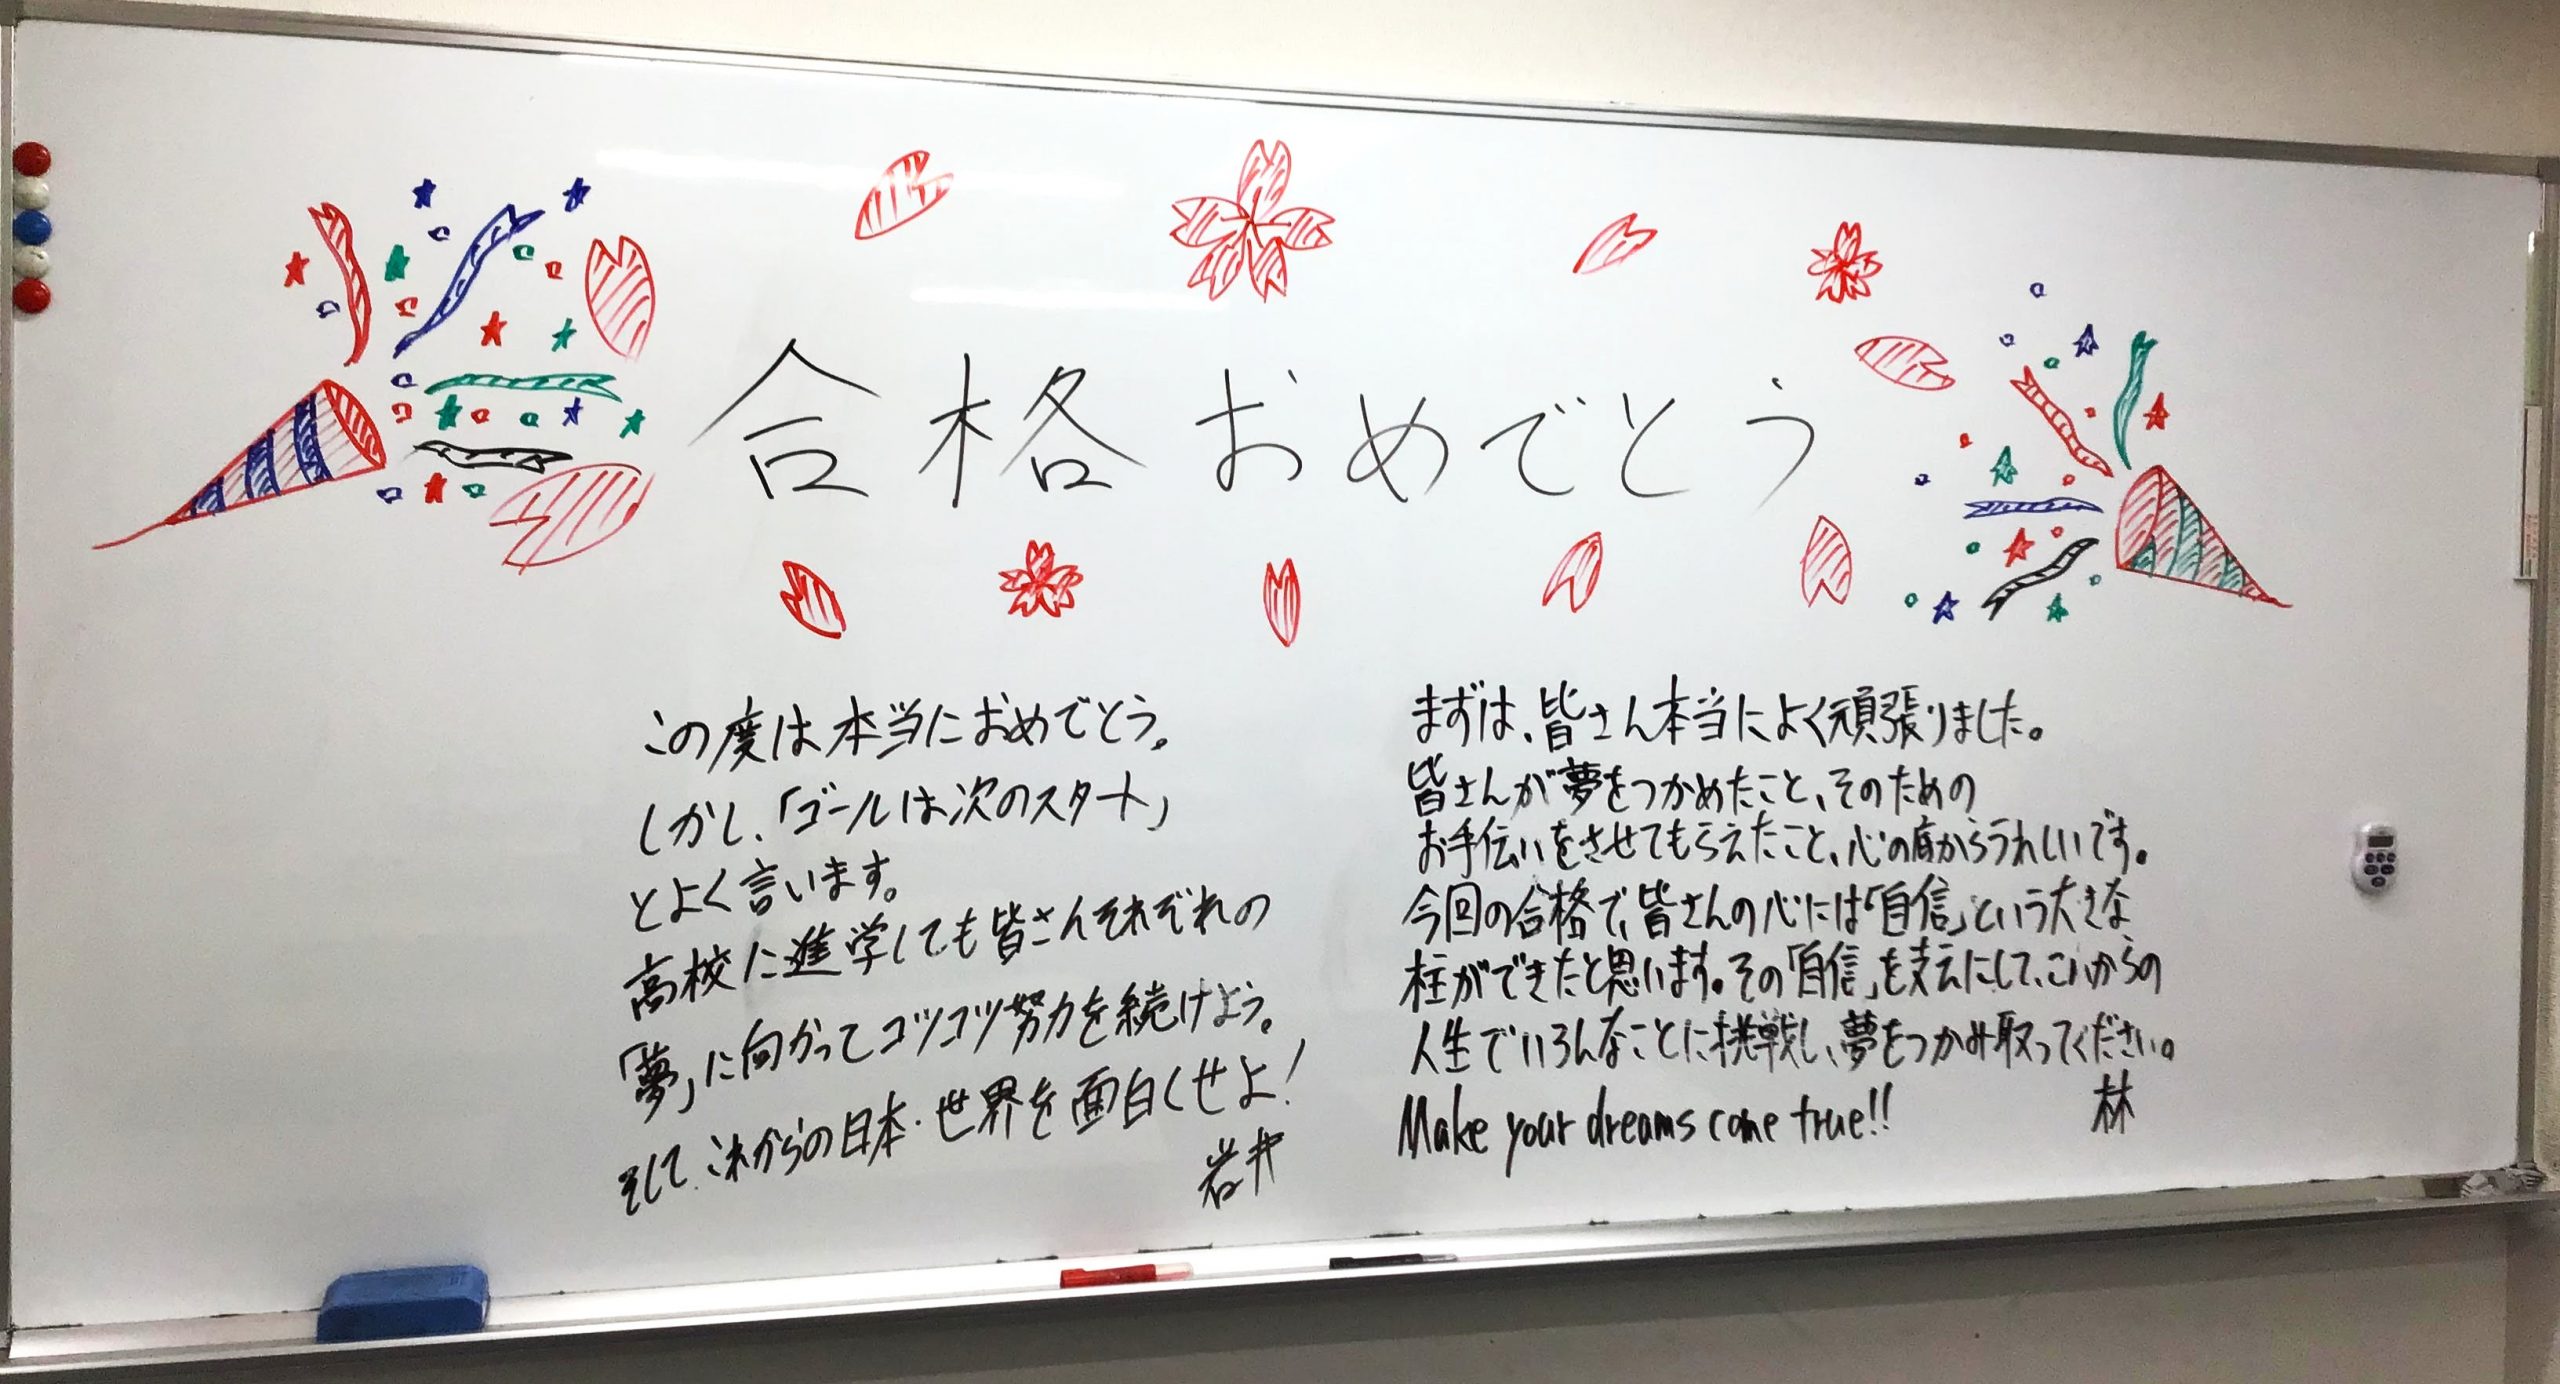 合格おめでとう
この度は本当におめでとう。
しかし、「ゴールは次のスタート」
とよく言います。
高校に進学しても皆さんそれぞれの
「夢」に向かってコツコツ努力を続けよう。
そして、これからの日本・世界を面白くせよ!
岩井
まずは、皆さん本当によく頑張りました。
皆さんが夢をつかめたこと、そのための
お手伝いをさせてもらえたこと、心の底からうれしいです。
今回の合格で、皆さんの心には「自信」という大きな
柱ができたと思います。その「自信」を支えにして、これからの
人生でいろんなことに挑戦し、夢をつかみ取ってください。
Make your dreams come true!!
林